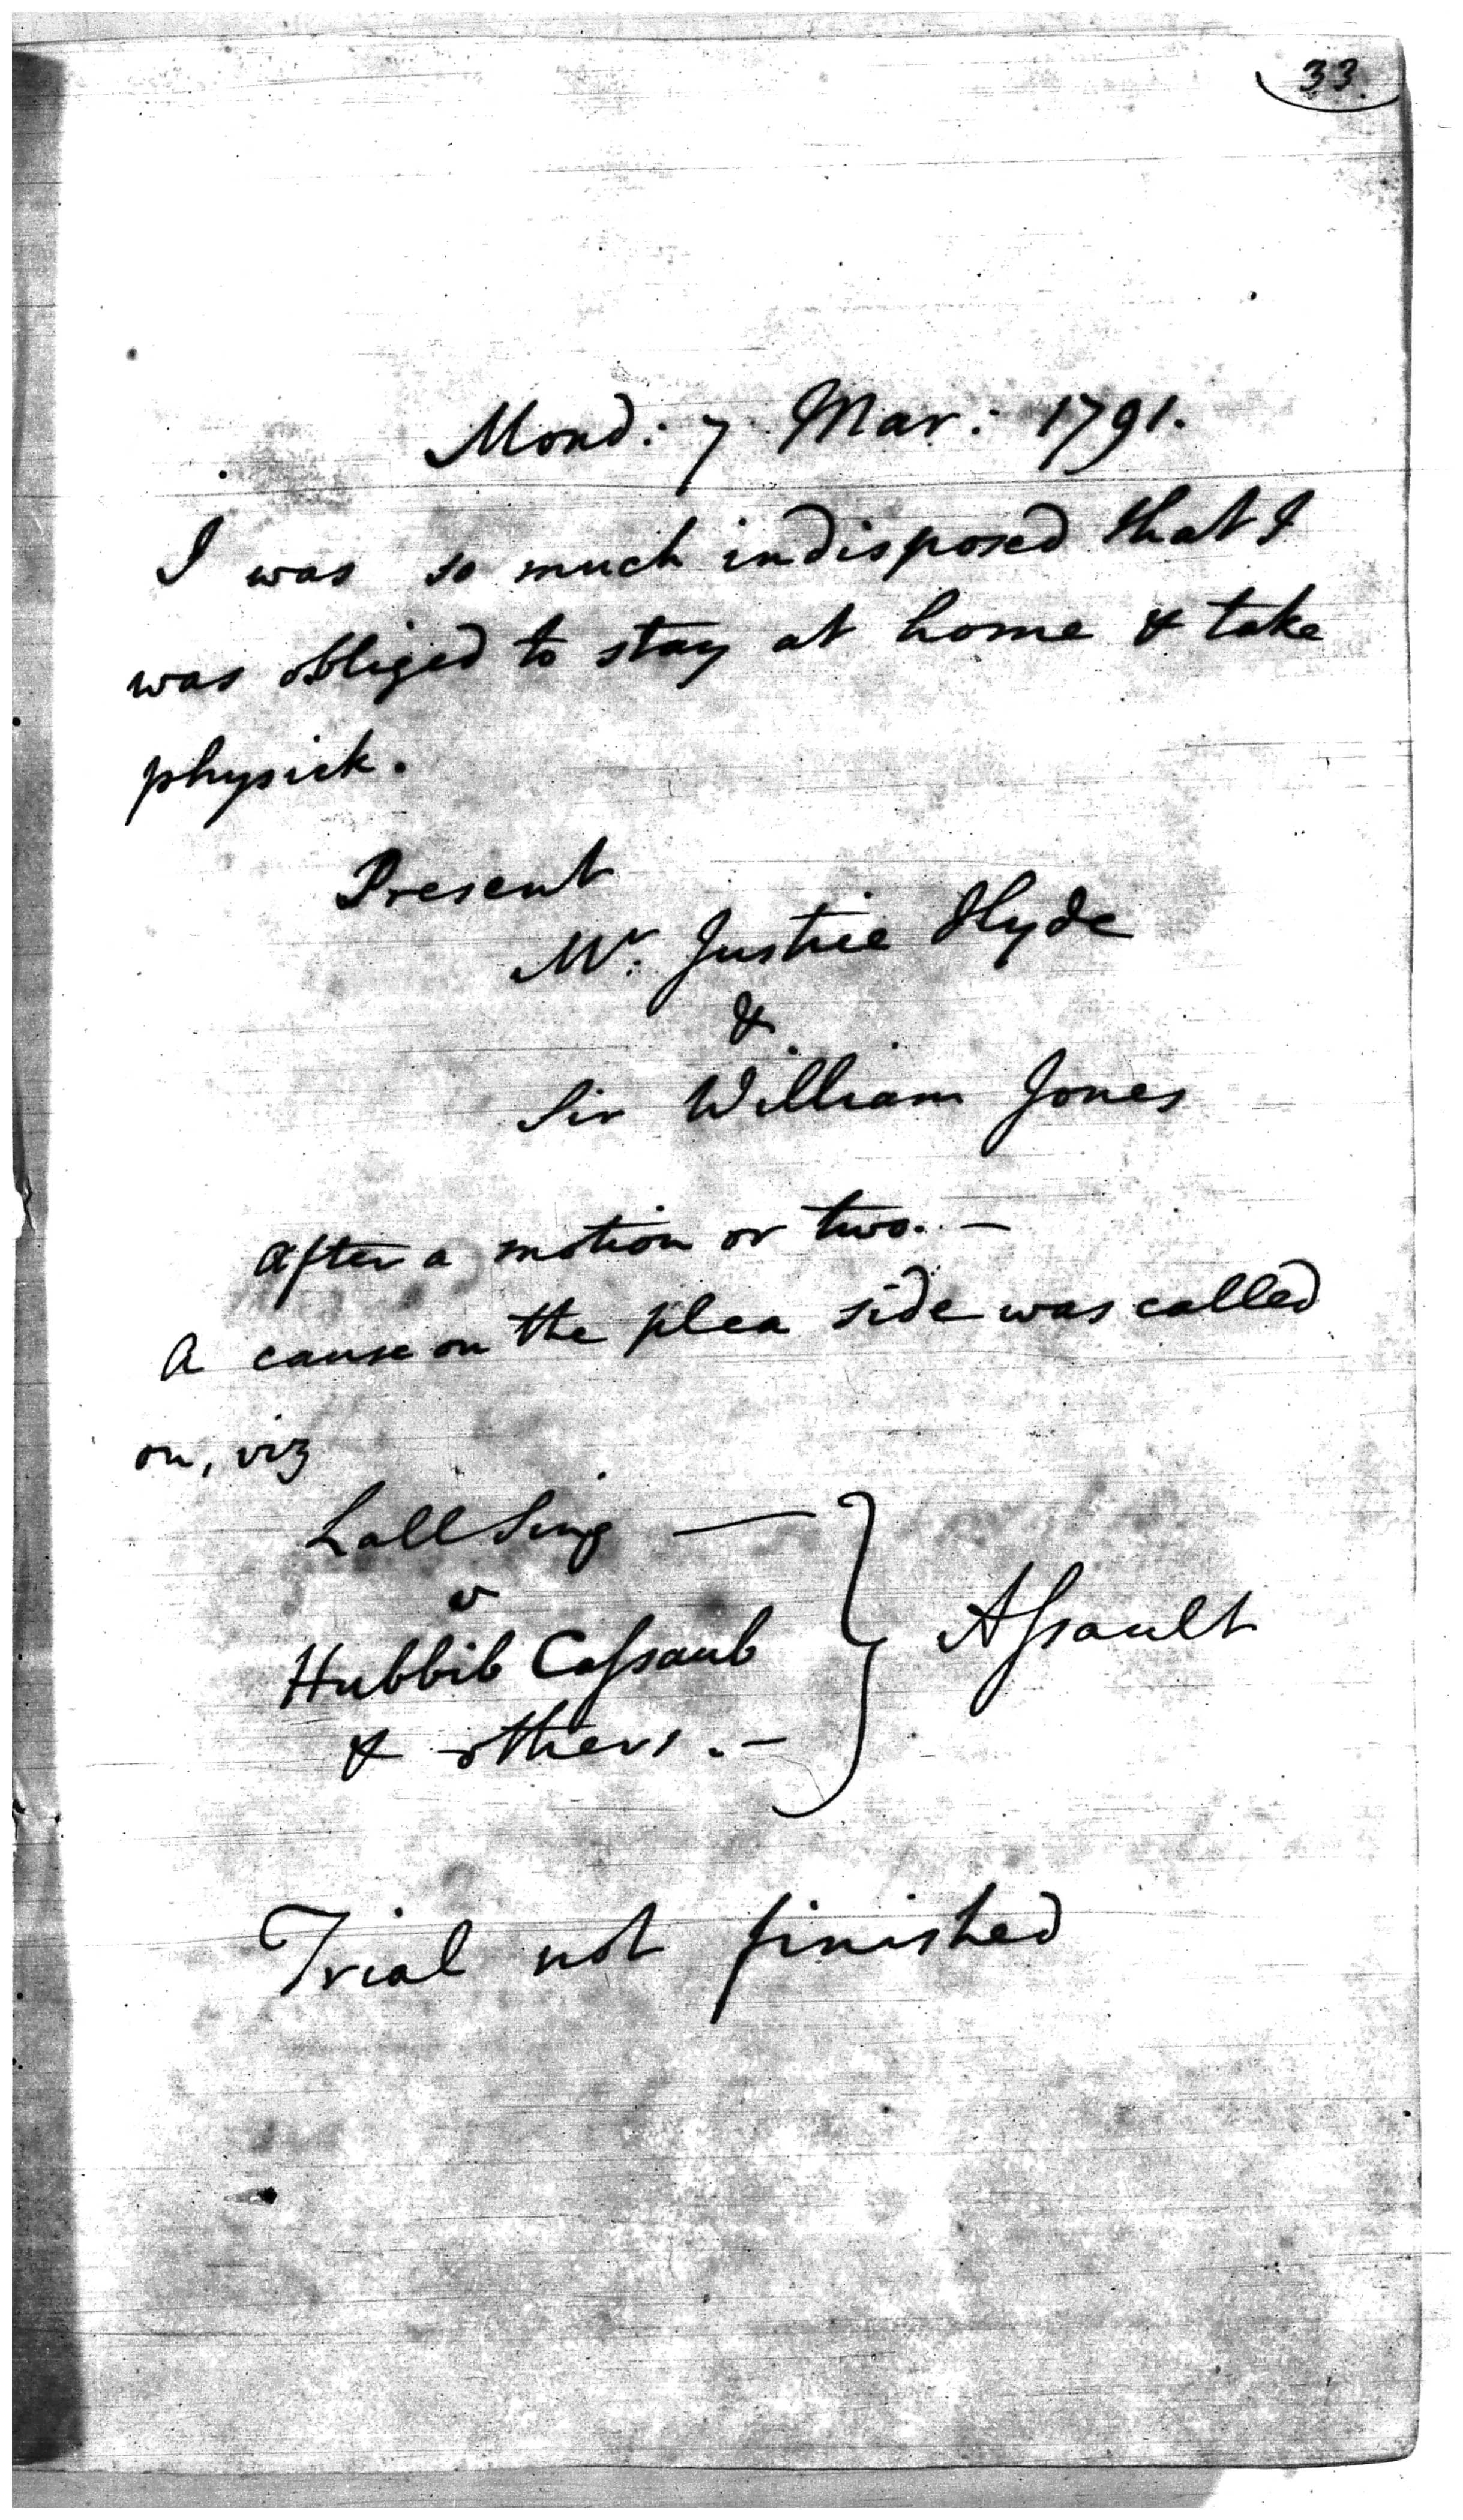 33.
Mond: 7 Mar: 1791.
I was so much indisposed that I
was obliged to stay at home & take
physick.
Present
Mr. Justice Hyde
&
Sir William Jones
After a motion or two. —
A cause on the plea side was called
on, viz
Lall Sing —
v
Hubbib Caſsaub
& others. —
Aſsault
Trial not finished